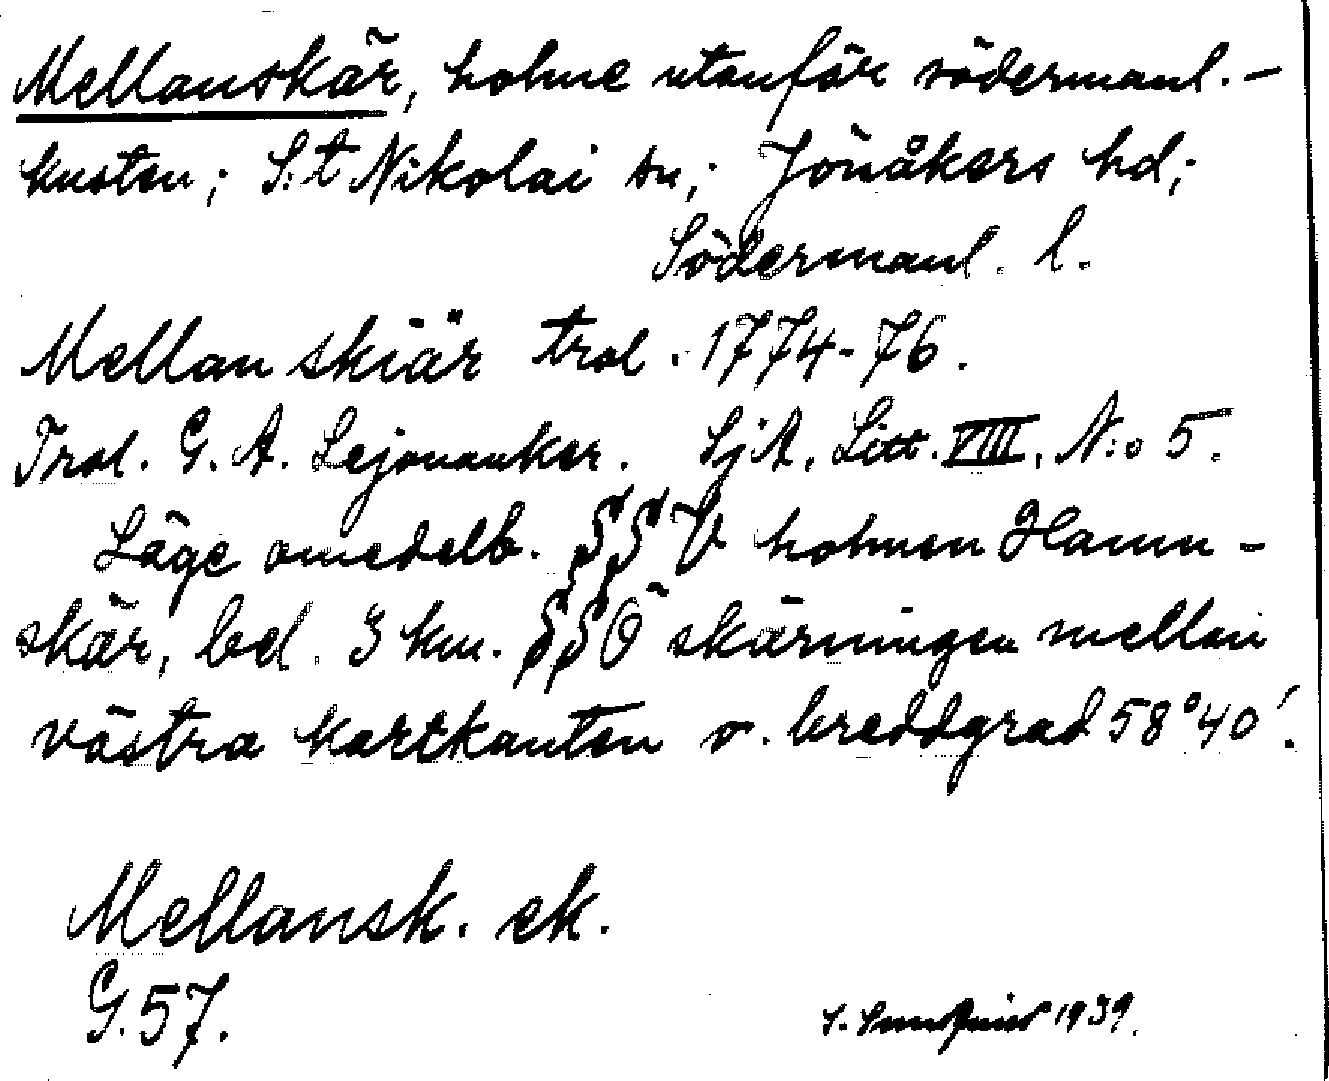 Mellanskär, holme utanför södermanl.-
kusten; S:t Nikolai sn; Jönåkers hd;
Södermanl. l.
Mellan skiär trol. 1774-76.
Trol. G. A. Lejonanker. SjA, Litt. VIII, N:o 5.
Läge omedelb. SSV holmen Hamn-
skär, bel. 3 km. SSÖ skärningen mellan
västra kartkanten o. breddgrad 58°40'.
Mellansk. ek.
G. 57.
1939.